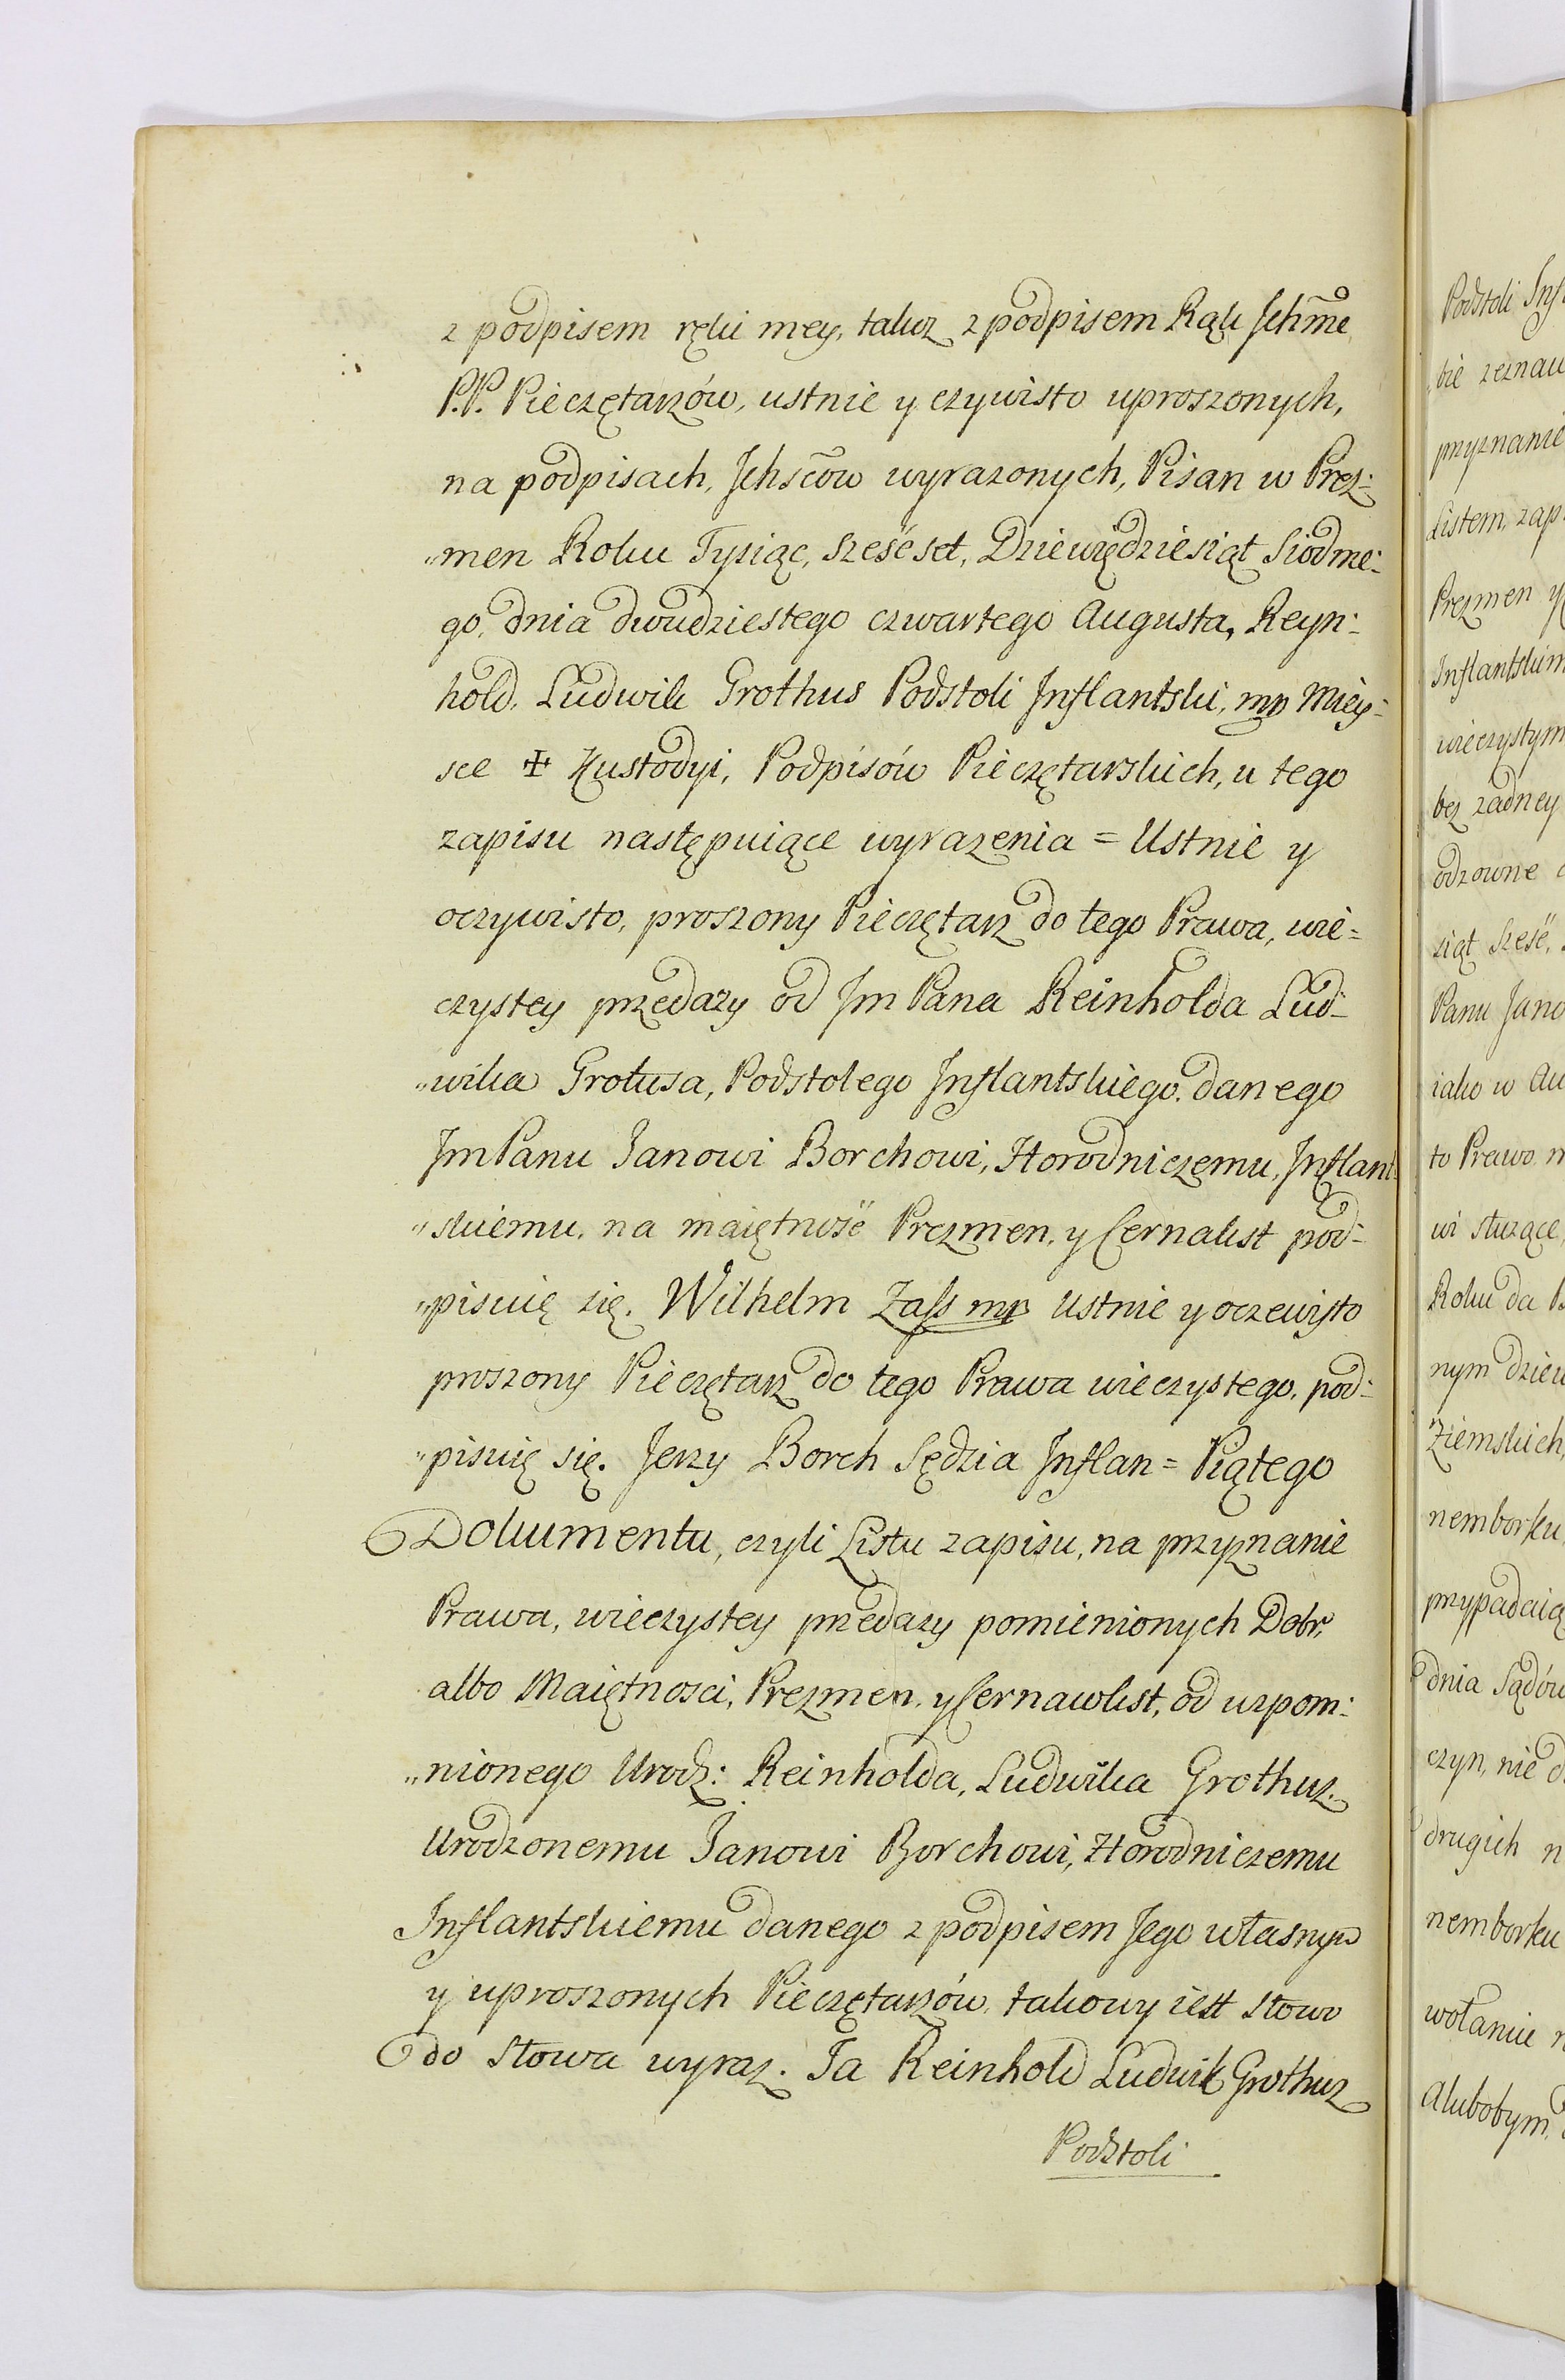 z podpisem ręki mey, takoz z podpisem Rąk Ichm̃e
P.P. Pieczętarzów, ustnie y czywisto uproszonych,
na podpisach, Ichsc̃ow wyrazonych, Pisan w Prez:
„men Roku Tysiąc, sześćset, Dziewiędziesiąt Siodme:
go, dnia dwudziestego czwartego Augusta, Reyn:
hold, Ludwik Grothus Podstoli Inflantski, mp Miey:
sce ✠ Kustodyi, Podpisów Pieczętarskich, u tego
zapisu następuiące wyrazenia = Ustnie y
oczywisto, proszony Pieczętarz do tego Prawa, wie=
czystey przedazy od Jm Pana Reinholda Lud=
„wika Grotusa, Podstolego Inflantskiego, danego
Jm Panu Janowi Borchowi, Horodniczemu, Inflant
„skiemu, na maiętność Prezmen, y Cernakst pod=
„pisuię się. Wilhelm Zass mp Ustnie y oczewisto
proszony Pieczętarz do tego Prawa wieczystego, pod:
„pisuię się. Jerzy Borch Sędzia Inflan = Piątego
Dokumentu, czyli Listu zapisu, na przyznanie
Prawa, wieczystey przedazy pomienionych Dobr,
albo Maiętnosci, Prezmen, y Cernawkst, od wzpom:
„nionego Urodz: Reinholda, Ludwika Grothuz.
Urodzonemu Janowi Borchowi, Horodniczemu
Inflantskiemu danego z podpisem Jego własnym
y uproszonych Pieczętarzów, takowy iest słowo
do słowa wyraz. Ja Reinhold Ludwik Grothuz
Podstoli
Podstoli Inf
bie zeznaw
przyznanie
Listem, zap
Prezmen y
Inflantskim
wieczystym
bez zadney
odzowne
ziąt sześć,
Panu Jano
iako w Au
to Prawo n
wi służące,
Roku da
nym dziew
Ziemskich,
nemborku,
przypadaią
dnia Sądów
czyn, nie d
drugich n
nemborku
wołaniu
Alubobym,